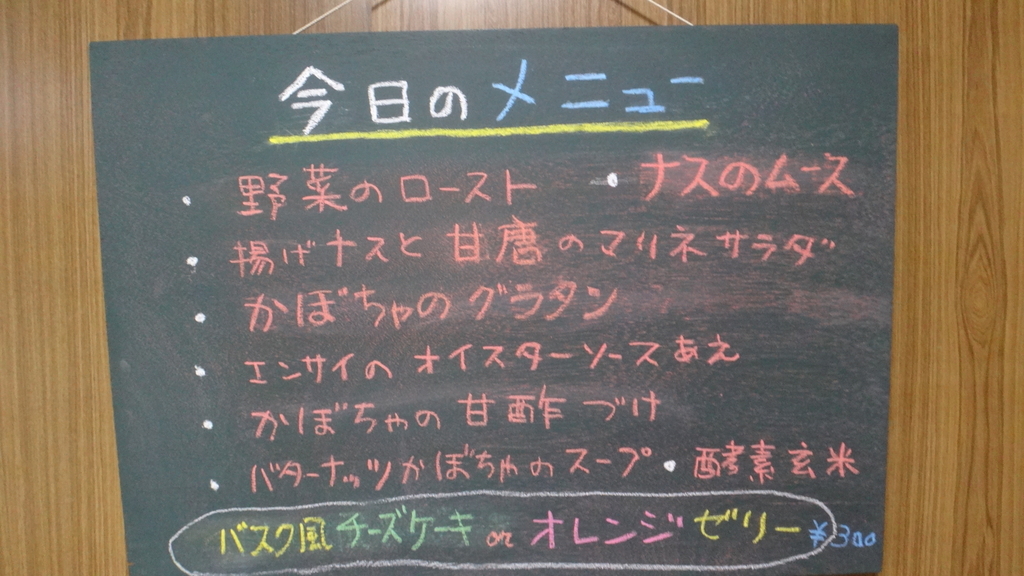 今日のメニュー
・野菜のロースト ・ナスのムース
・揚げナスと甘唐のマリネサラダ
・かぼちゃのグラタン
・エンサイのオイスターソースあえ
・かぼちゃの甘酢づけ
・バターナッツかぼちゃのスープ ・酵素玄米
バスク風チーズケーキ or オレンジゼリー ¥300